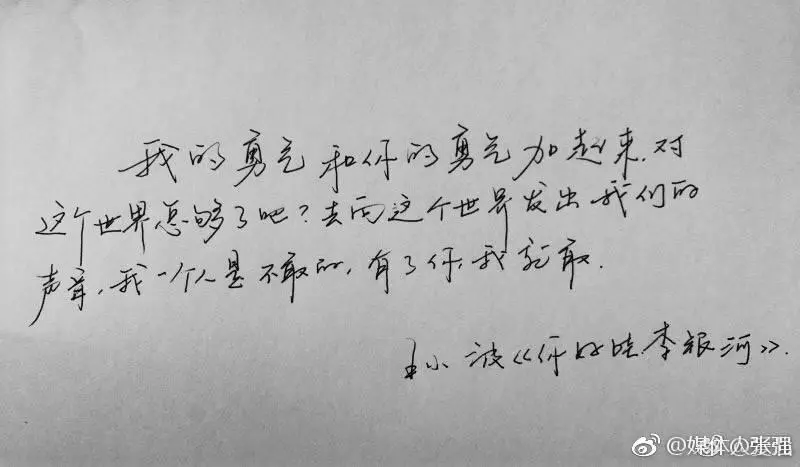 我的勇气和你的勇气加起来，对
这个世界总够了吧？去向这个世界发出我们的
声音，我一个人是不敢的，有了你，我就敢．
王小波《你好哇，李银河》．
@媒体人张强